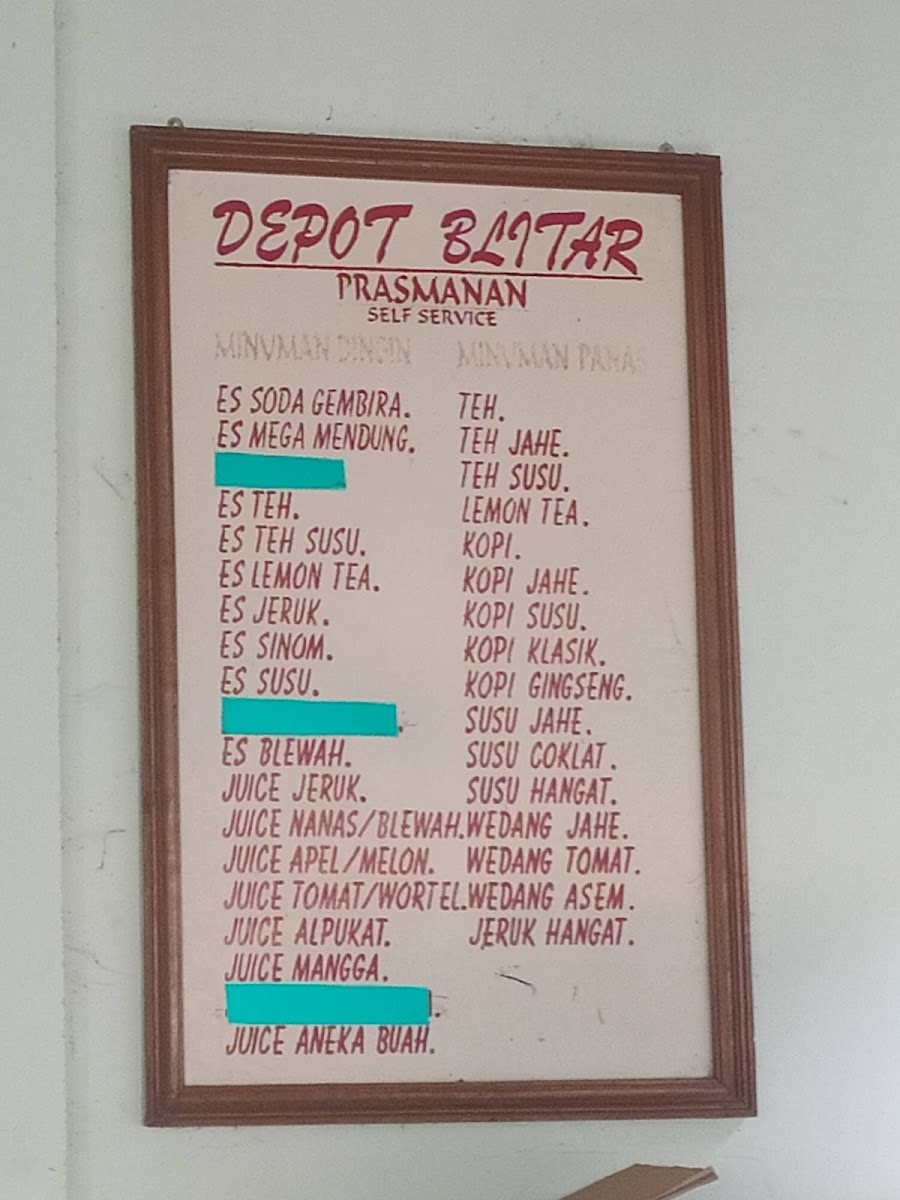 DEPOT BLITAR
PRASMANAN
SELF SERVICE
MINUMAN DINGIN
ES SODA GEMBIRA.
ES MEGA MENDUNG.
ES TEH.
ES TEH SUSU.
ES LEMON TEA.
ES JERUK.
ES SINOM.
ES SUSU.
ES BLEWAH.
JUICE JERUK.
JUICE NANAS/BLEWAH.
JUICE APEL/MELON.
JUICE TOMAT/WORTEL.
JUICE ALPUKAT.
JUICE MANGGA.
JUICE ANEKA BUAH.
MINUMAN PANAS
TEH.
TEH JAHE.
TEH SUSU.
LEMON TEA.
KOPI.
KOPI JAHE.
KOPI SUSU.
KOPI KLASIK.
KOPI GINGSENG.
SUSU JAHE.
SUSU COKLAT.
SUSU HANGAT.
WEDANG JAHE.
WEDANG TOMAT.
WEDANG ASEM.
JERUK HANGAT.